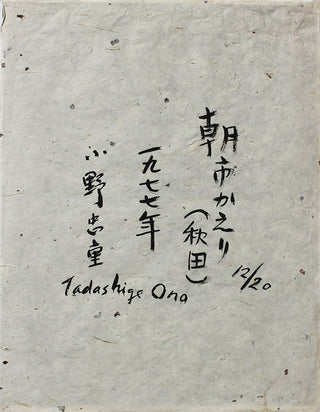 朝市かえり
(秋田)
12/20
一九七七年
小野忠重
Tadashige Ono